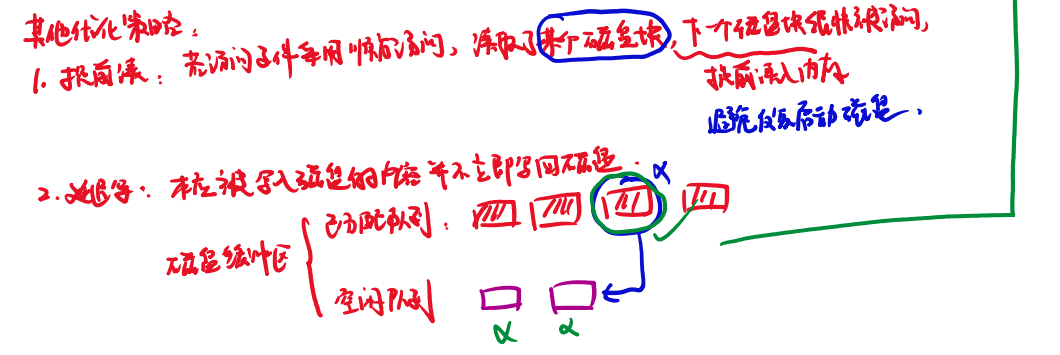 其他优化策略：
1. 提前读：若访问文件采用顺序访问，读取了某个磁盘块，下一个磁盘块很快被访问，
提前读入内存
避免反复启动磁盘．
2. 延迟写：本应被写入磁盘的内容并不立即写回磁盘．
α
已分配队列：
磁盘缓冲区
空闲队列
α α